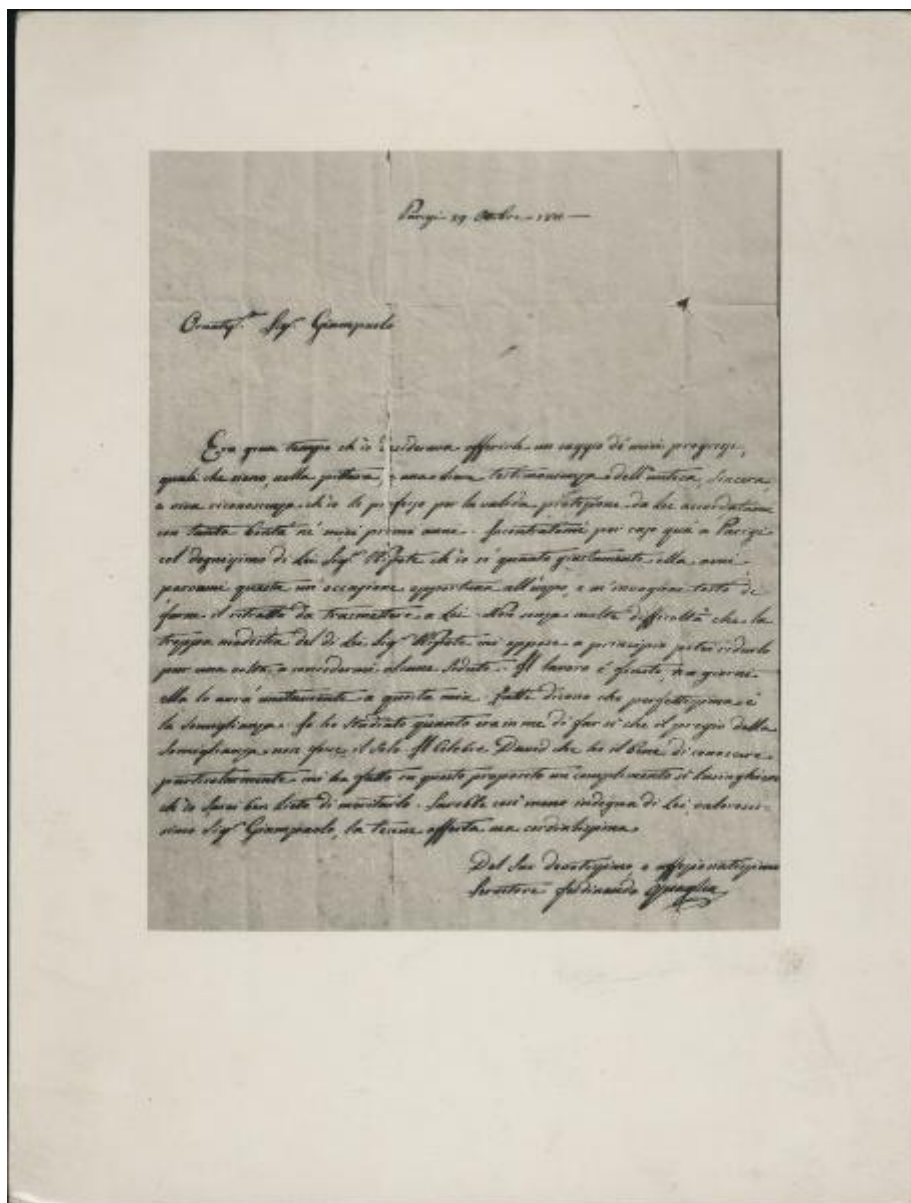 Parigi 29 Ottobre
Sig.r Giampaolo
Era gran tempo ch'io desiderava offerirle un saggio de' miei progressi,
quali che sieno, nella pittura, e una testimonianza dell'antica, sincera,
e viva riconoscenza ch'io le professo per la valida protezione da Lei accordatami
con tanta bontà ne' miei primi anni. Incontratomi per caso quà a Parigi
col degnissimo di Lei Sig.r Nipote ch'io sò quanto giustamente ella ami
parvemi questa un'occasione opportuna all'uopo, e m'invogliai tosto di
farne il ritratto da trasmettere a Lei. Non senza molta difficoltà che la
troppa modestia del di Lei Sig.r Nipote mi oppose a principio potei ridurlo
pur una volta a concedermi alcune sedute. Il lavoro è finito, giorni
ella lo avrà unitamente a questa mia. Tutti dicono che perfettissima è
la somiglianza. Io ho studiato quanto era in me di far sì che il pregio della
somiglianza non fosse il solo. Il celebre David che ho il bene di conoscere
particolarmente mi ha fatto su questo proposito un complimento sì lusinghiero
ch'io sarei ben lieto di meritarlo. Sarebbe così meno indegna di Lei, valorosis-
simo Sig.r Giampaolo, la tenue offerta ma cordialissima
Del Suo devotissimo, e affezionatissimo
Servitore Ferdinando Quaglia